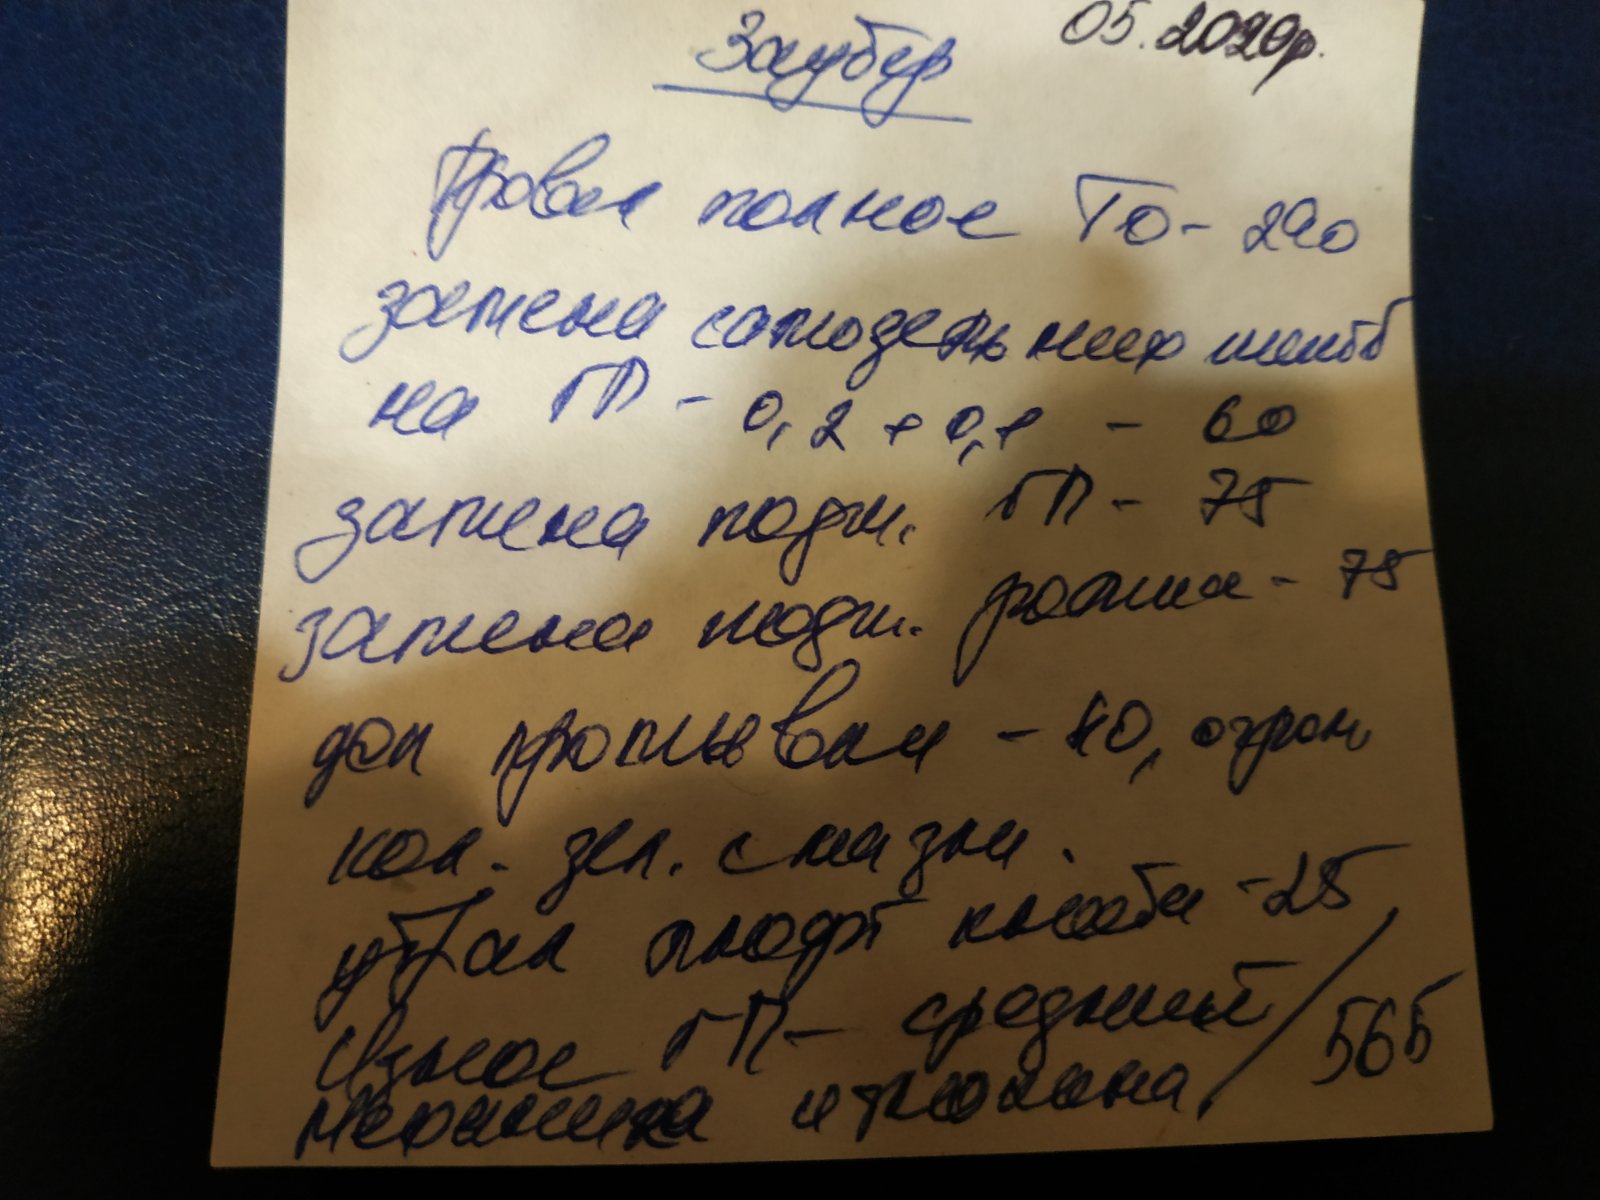 Заубер 05.2020г.
Провел полное ТО - 290
замена самодельных шайб
на ГП - 0,2 + 0,1 - 60
замена подш. ГП - 75
замена подш. ролика - 75
доп промывки - 40, огром
кол. зел. смазки.
убрал люфт кноба - 25
Износ ГП - средний
механика 565